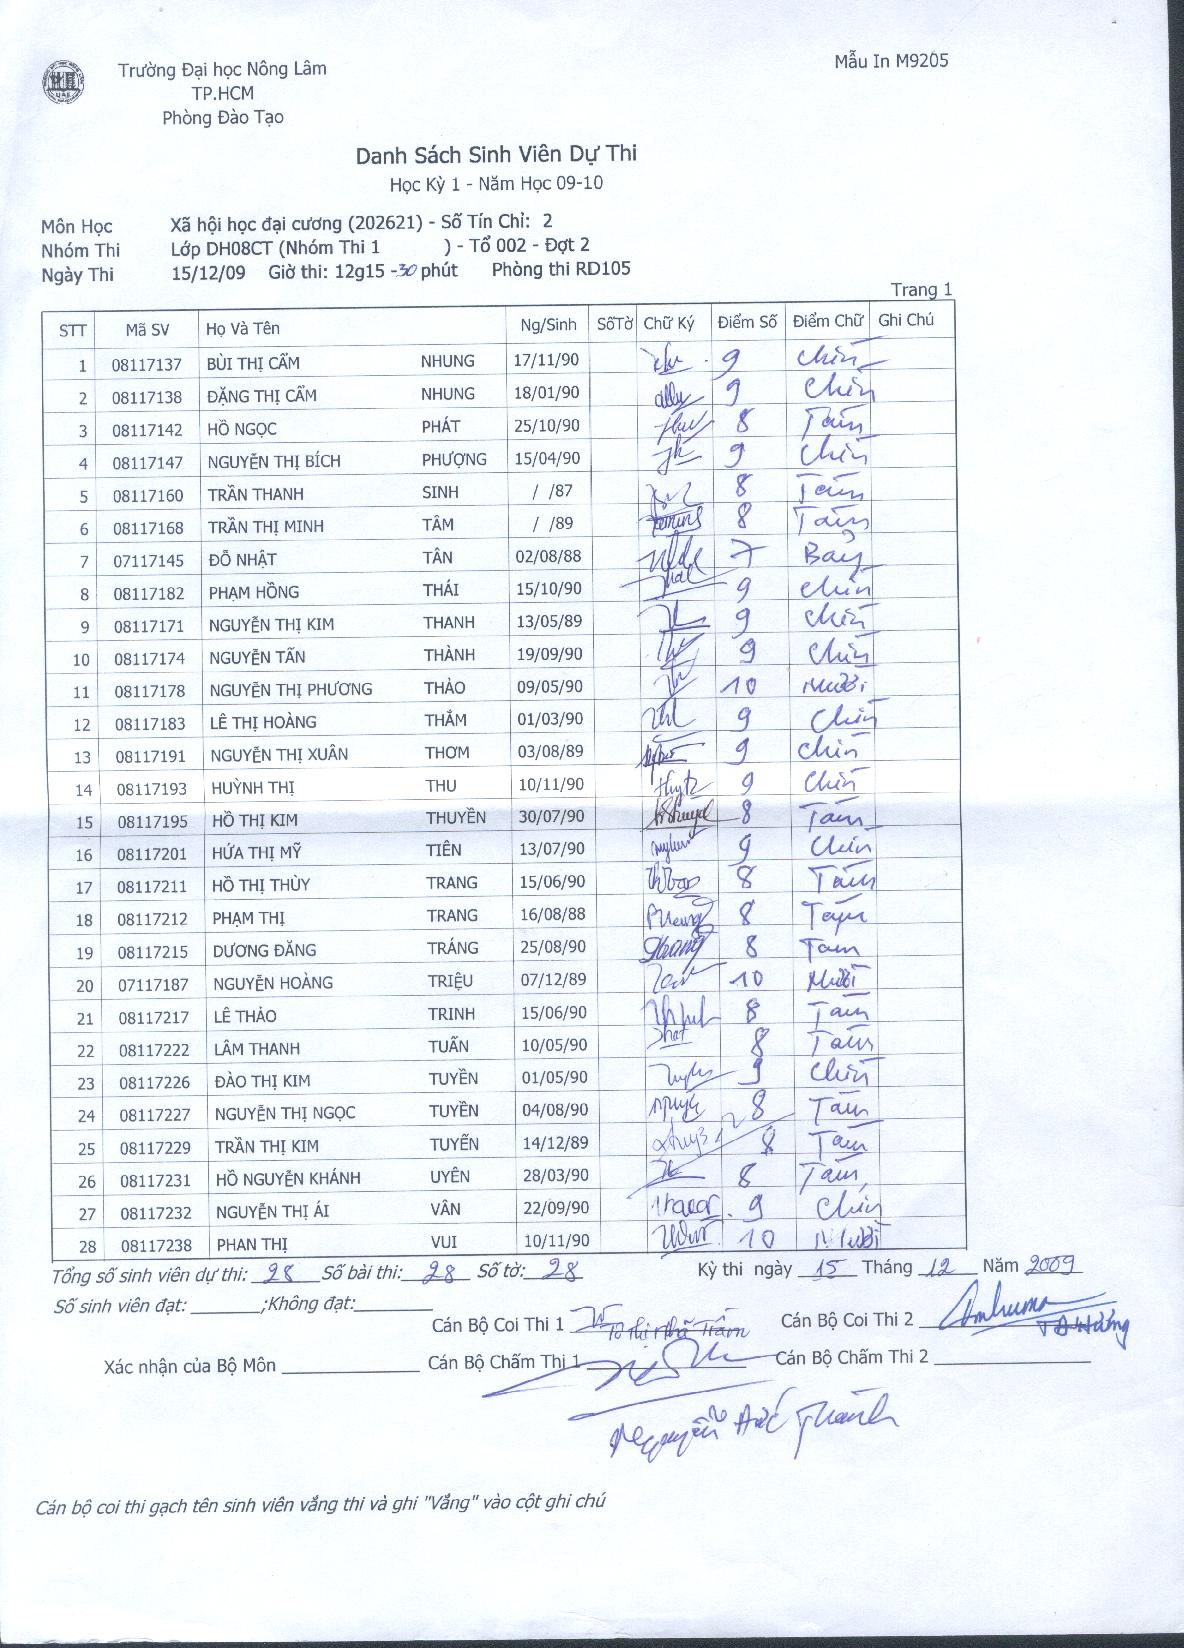 Trường Đại học Nông Lâm
TP.HCM
Phòng Đào Tạo
Mẫu In M9205
Danh Sách Sinh Viên Dự Thi
Học Kỳ 1 - Năm Học 09-10
Môn Học Xã hội học đại cương (202621) - Số Tín Chỉ: 2
Nhóm Thi Lớp DH08CT (Nhóm Thi 1 ) - Tổ 002 - Đợt 2
Ngày Thi 15/12/09 Giờ thi: 12g15 -30 phút Phòng thi RD105
Trang 1
STT Mã SV Họ Và Tên Ng/Sinh SốTờ Chữ Ký Điểm Số Điểm Chữ Ghi Chú
1 08117137 BÙI THỊ CẨM NHUNG 17/11/90 9 Chín
2 08117138 ĐẶNG THỊ CẨM NHUNG 18/01/90 9 Chín
3 08117142 HỒ NGỌC PHÁT 25/10/90 8 Tám
4 08117147 NGUYỄN THỊ BÍCH PHƯỢNG 15/04/90 9 Chín
5 08117160 TRẦN THANH SINH / /87 8 Tám
6 08117168 TRẦN THỊ MINH TÂM / /89 8 Tám
7 07117145 ĐỖ NHẬT TÂN 02/08/88 7 Bảy
8 08117182 PHẠM HỒNG THÁI 15/10/90 9 Chín
9 08117171 NGUYỄN THỊ KIM THANH 13/05/89 9 Chín
10 08117174 NGUYỄN TẤN THÀNH 19/09/90 9 Chín
11 08117178 NGUYỄN THỊ PHƯƠNG THẢO 09/05/90 10 Mười
12 08117183 LÊ THỊ HOÀNG THẮM 01/03/90 9 Chín
13 08117191 NGUYỄN THỊ XUÂN THƠM 03/08/89 9 Chín
14 08117193 HUỲNH THỊ THU 10/11/90 9 Chín
15 08117195 HỒ THỊ KIM THUYỀN 30/07/90 8 Tám
16 08117201 HỨA THỊ MỸ TIÊN 13/07/90 9 Chín
17 08117211 HỒ THỊ THÙY TRANG 15/06/90 8 Tám
18 08117212 PHẠM THỊ TRANG 16/08/88 8 Tám
19 08117215 DƯƠNG ĐĂNG TRÁNG 25/08/90 8 Tám
20 07117187 NGUYỄN HOÀNG TRIỆU 07/12/89 10 Mười
21 08117217 LÊ THẢO TRINH 15/06/90 8 Tám
22 08117222 LÂM THANH TUẤN 10/05/90 8 Tám
23 08117226 ĐÀO THỊ KIM TUYỀN 01/05/90 9 Chín
24 08117227 NGUYỄN THỊ NGỌC TUYỀN 04/08/90 8 Tám
25 08117229 TRẦN THỊ KIM TUYẾN 14/12/89 8 Tám
26 08117231 HỒ NGUYỄN KHÁNH UYÊN 28/03/90 8 Tám
27 08117232 NGUYỄN THỊ ÁI VÂN 22/09/90 9 Chín
28 08117238 PHAN THỊ VUI 10/11/90 10 Mười
Tổng số sinh viên dự thi: 28 Số bài thi: 28 Số tờ: 28 Kỳ thi ngày 15 Tháng 12 Năm 2009
Số sinh viên đạt: ;Không đạt:
Cán Bộ Coi Thi 1 Cán Bộ Coi Thi 2
Xác nhận của Bộ Môn Cán Bộ Chấm Thi 1 Cán Bộ Chấm Thi 2
Nguyễn Đức Thành
Cán bộ coi thi gạch tên sinh viên vắng thi và ghi "Vắng" vào cột ghi chú